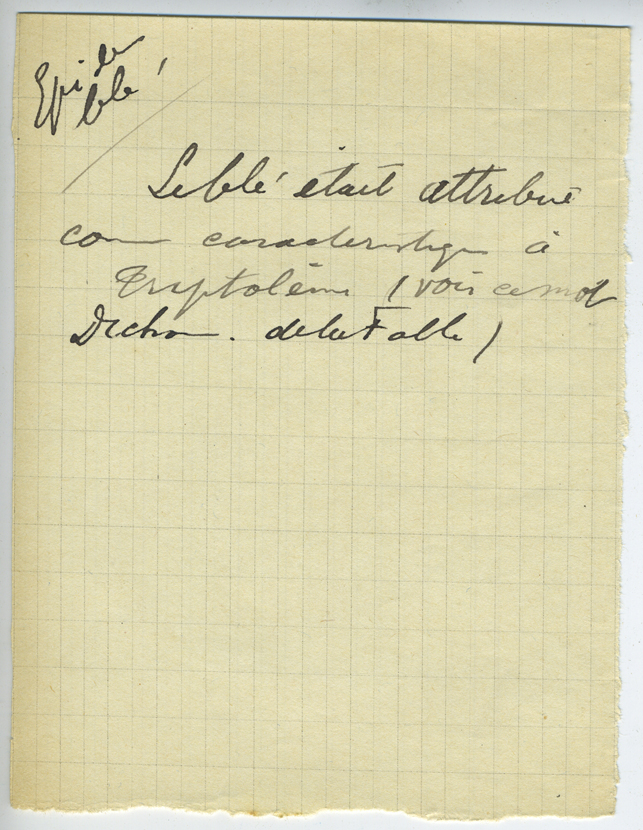 Epi de
blé
Le blé était attribué
com caracteristique à
Tryptolème (voir ce mot
Diction. de la Fable)